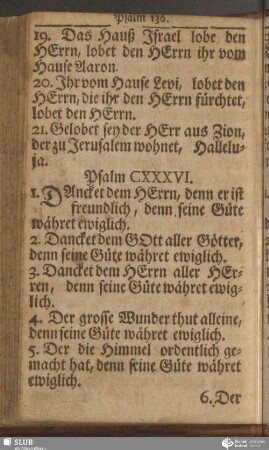 Psalm 136.
19. Das Hauß Israel lobe den
HErrn, lobet den HErrn ihr vom
Hause Aaron.
20. Ihr vom Hause Levi, lobet den
HErrn, die ihr den HErrn fürchtet,
lobet den HErrn.
21. Gelobet sey der HErr aus Zion,
der zu Jerusalem wohnet, Hallelu-
ja.
Psalm CXXXVI.
1. DAncket dem HErrn, denn er ist
freundlich, denn seine Güte
währet ewiglich.
2. Dancket dem GOtt aller Götter,
denn seine Güte währet ewiglich.
3. Dancket dem HErrn aller HEr-
ren, denn seine Güte währet ewig-
lich.
4. Der grosse Wunder thut alleine,
denn seine Güte währet ewiglich.
5. Der die Himmel ordentlich ge-
macht hat, denn seine Güte währet
ewiglich.
6. Der
SLUB